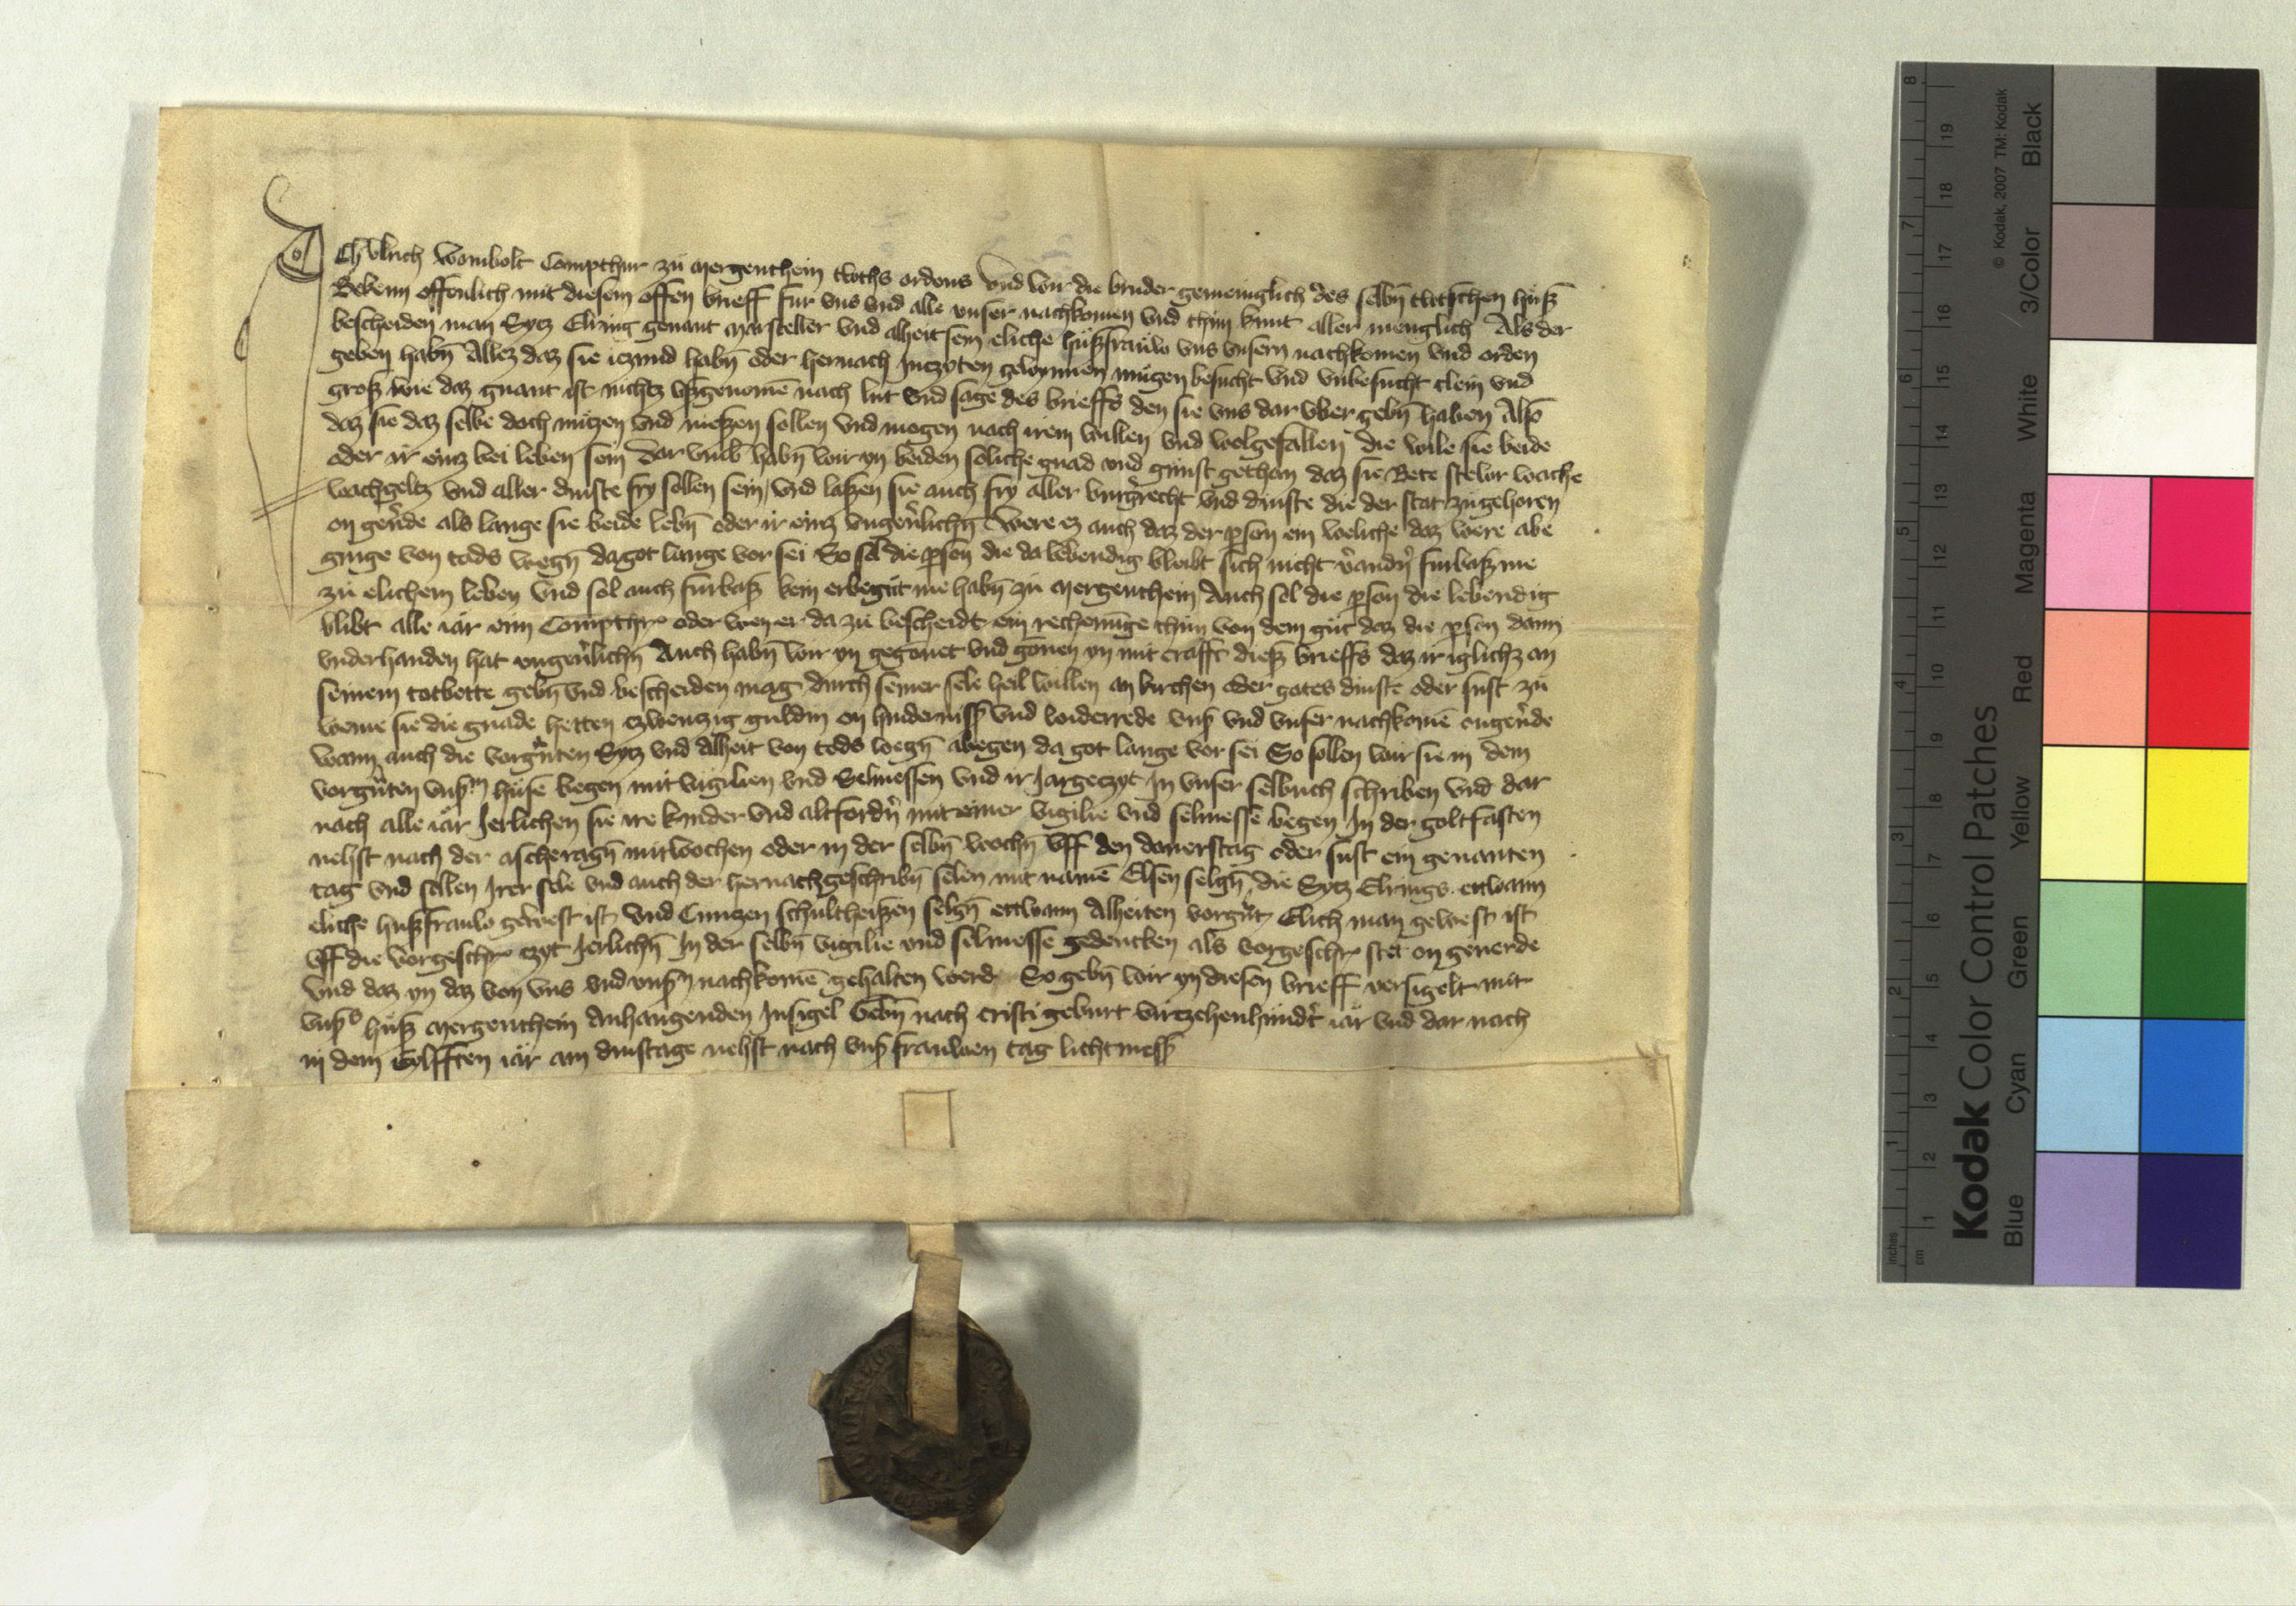 ICh Vlrich Wombolt Compthur zu Mergentheim tutschs ordens vnd wir die bruder gemeinglich des selbn tutschen huß
Bekenn offenlich mit diesem offen brieff fur vns vnd alle vnser nachkomen vnd thun kunt aller menglich Als der
bescheiden man Sytz Elring genant marsteller vnd alheit sein eliche hußfrauw vns vnsern nachkomen vnd orden
geben habn Allez daz sie iczund habn oder hernach inczyten gewynnen mugen besucht vnd vnbesucht clein vnd
groß wie daz gnant ist nichtz vßgenomē nach lut vnd sage des brieffs den sie vns dar vber gebn haben Also
daz sie daz selbe doch nutzen vnd nießen sollen vnd mogen nach irem willen vnd wolgefallen die wile sie beide
oder ir einz bei leben sein Dar vmb habn wir yn beiden soliche gnad vnd gunst gethan daz sie Bete stewr wache
wachgeltz vnd aller dinste fry sollen sein, vnd laßen sie auch fry aller burgrecht vnd dinste die der stat zugehoren
on geuerde als lange sie beide lebn oder ir einz vngeuerlichn Were ez auch daz der person ein weliche daz were abe
ginge von tods wegn da got lange vor sei So sol die person die da lebendig bleibt sich nicht verandern furbaß me
zu elichem leben vnd sol auch furbaß kein erbegut me habn zu Mergentheim Auch sol die person die lebendig
blibt alle iar eim Compthur oder wen er da zu bescheidt ein rechenunge thun von dem gut daz die person dann
vnderhanden hat vngeuerlichn Auch habn wir yn gegonet vnd gonen yn mit crafft dieß brieffs daz ir iglichz an
seinem totbette gebn vnd bescheiden mag durch seiner sele heil willen an kirchen oder gotes dinste oder sust zu
weme sie die gnade hetten czwenzig guldin on hinderniß vnd widerrede vnß vnd vnser nachkomē ongeuerde
wann auch die vorgnten Sytz vnd Alheit von tods wegn abegen da got lange vor sei So sollen wir sie in dem
vorgnten vnßm huse begen mit vigilien vnd Selmessen vnd ir Jargeczyt in vnser selbuch schriben vnd dar
nach alle iar Jerlichen sie ire kinder vnd altfordern mit einer vigilie vnd selmesse begen In der goltfasten
nehst nach der ascherign mitwochen oder in der selbn wochn vff den donerstag oder sust ein genanten
tag vnd sollen irer sele vnd auch der hernachgeschribn selen mit namē Elsen selgn, die Sytz Elrings ettwann
eliche hußfrauw gewest ist vnd Cuntzen schultheißen selgn ettwann Alheiten vorgnt Elich man gewest ist
vff die vorgeschr czyt Jerlichn In der selbn vigilie vnd selmesse gedencken als vorgeschr stet on geuerde
Vnd daz yn daz von vns vnd vnßn nachkomē gehalten werd So gebn wir yn diesen brieff versigelt mit
vnßs huß Mergentheim Anhangenden Insigel Gebn nach cristi geburt virtzehenhundert iar vnd dar nach
in dem Eylfften iar am dinstage nehst nach vnß frauwen tag lichtmeß
Kodak Color Control Patches
© Kodak, 2007 TM: Kodak
Blue Cyan Green Yellow Red Magenta White 3/Color Black
inches 1 2 3 4 5 6 7 8
cm 1 2 3 4 5 6 7 8 9 10 11 12 13 14 15 16 17 18 19